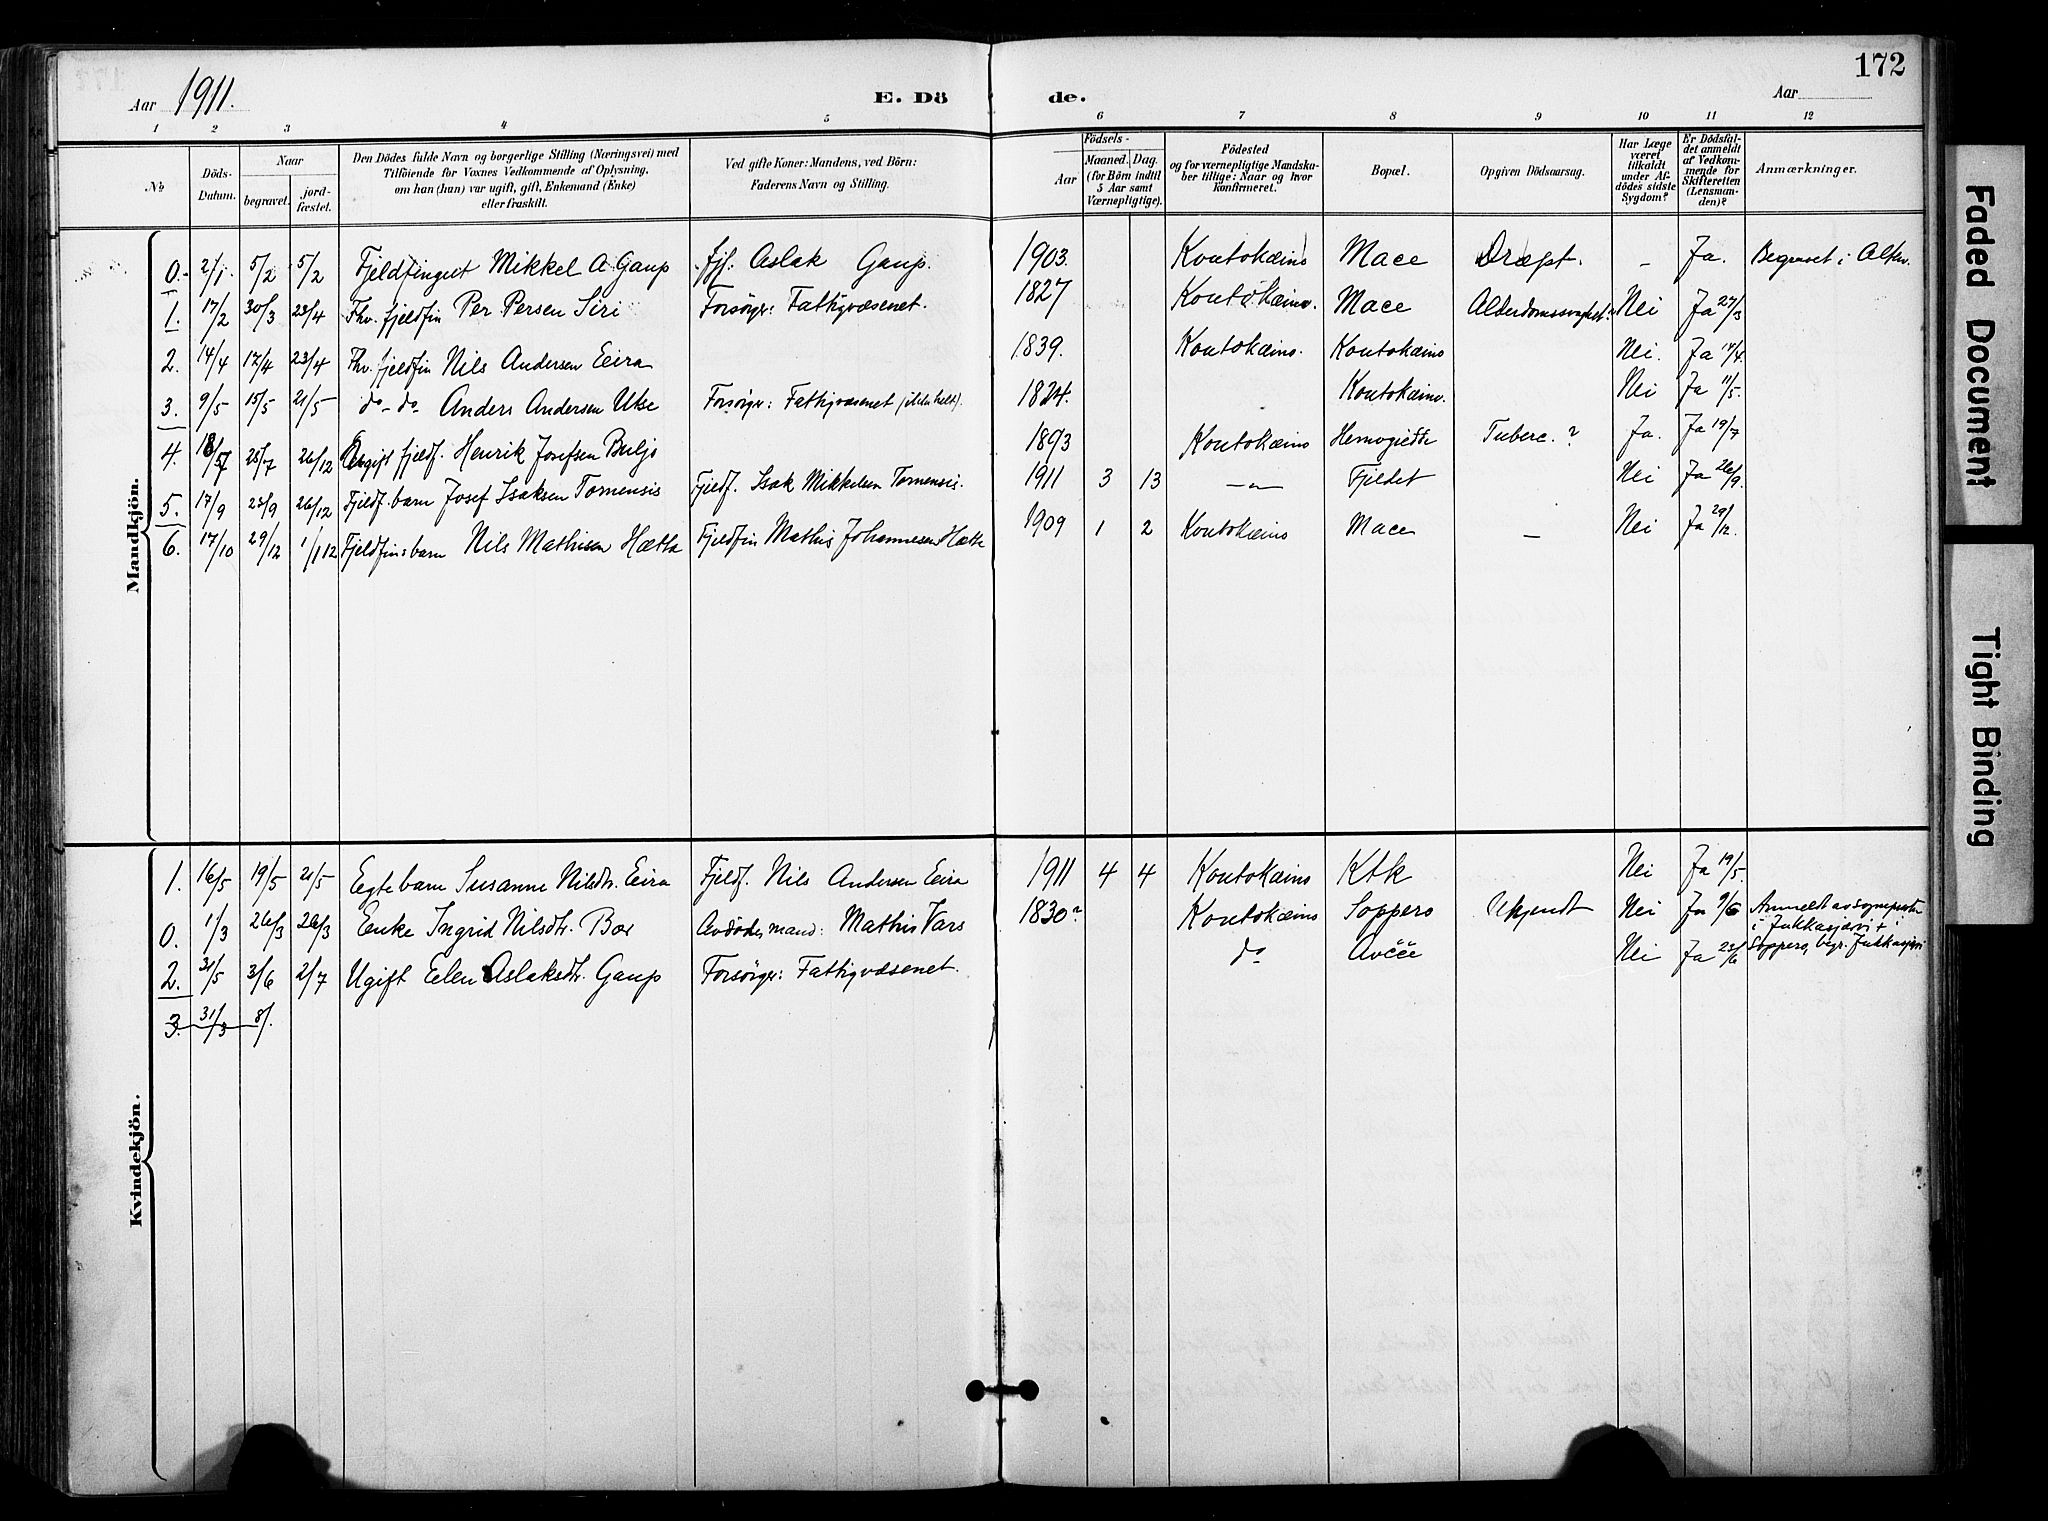 172
Aar 1911.
E. Dö de.
Aar
1 2 3 4 5 6 7 8 9 10 11 12
No
Döds-Datum.
Naar
begravet.
jord-fæstet.
Den Dödes fulde Navn og borgerlige Stilling (Næringsvei) med
Tilföiende for Voxnes Vedkommende af Oplysning,
om han (hun) var ugift, gift, Enkemand (Enke)
eller fraskilt.
Ved gifte Koner: Mandens, ved Börn:
Faderens Navn og Stilling.
Födsels-
Aar
Maaned. Dag.
(for Börn indtil
5 Aar samt
Værnepligtige).
Födested
og for værnepligtige Mandska-
ber tillige: Naar og hvor
konfirmeret.
Bopæl.
Opgiven Dödsaarsag.
Har Læge
været
tilkaldt
under Af-
dödes sidste
Sygdom?
Er Dödsfal-
det anmeldt
af Vedkom-
mende for
Skifteretten
(Lensman-
den)?
Anmærkninger.
Mandkjön.
0. 2/1. 5/2 5/2 Fjeldfingut Mikkel A. Gaup fjf. Aslak Gaup. 1903. Koutokeino Mace Dræpt. - Ja. Begravet i Alten.
1. 17/2 30/3 23/4 Fhv. fjeldfin Per Persen Siri Forsörger: Fattigvæsenet. 1827 Koutokeino. Mace Alderdomssvaghet? Nei Ja 27/3
2. 14/4 17/4 23/4 Fhv. fjeldfin Nils Andersen Eira 1839. Koutokeino. Koutokeino Nei. Ja 17/4.
3. 9/5 15/5 21/5 do - do Anders Andersen Utse Forsörger: Fattigvæsenet 1824. Koutokeino. Nei Ja 11/5.
4. 25/7 26/12 Ugift fjeldf. Henrik Josefsen Buljo 1893 Koutokeino Tuberc.? Ja. Ja 19/7
5. 17/9 23/9 26/12 Fjeldf. barn Josef Isaksen Tornensis Fjeldf. Isak Mikkelsen Tornensis. 1911 3 13 -"- Fjeldet Nei Ja 26/9.
6. 17/10 29/12 1/1 12 Fjeldfinsbarn Nils Mathisen Hætta Fjeldfin Mathis Johannesen Hætta 1909 1 2 Koutokeino Mace - Nei Ja 29/12.
Kvindekjön.
1. 16/5 19/5 21/5 Egtebarn Susanne Nilsdtr. Eira Fjeldf. Nils Andersen Eira 1911 4 4 Koutokeino Ktk Nei Ja 19/5.
0. 1/3 26/3 26/3 Enke Ingrid Nilsdtr. Bær Avdöde mand: Mathis Vars 1830? Koutokeino Soppero Ukjendt Nei Ja 9/6 Anmeldt av sogneprsten i Jukkasjärvi + Soppero, begr. Jukkasjärvi
2. 31/5 3/6 2/7 Ugift Elen Aslaksdtr. Gaup Forsörger: Fattigvæsenet. do Avčče Nei Ja 23/6
3. 31/3 8/.
Faded Document
Tight Binding